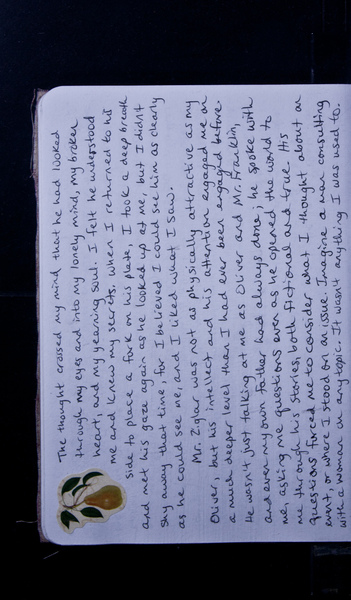 The thought crossed my mind that he had looked
through my eyes and into my lonely mind, my broken
heart, and my yearning soul. I felt he understood
me and knew my secrets. When I returned to his
side to place a fork on his plate, I took a deep breath
and met his gaze again as he looked up at me, but I didn't
shy away that time, for I believed I could see him as clearly
as he could see me, and I liked what I saw.
Mr. Ziglar was not as physically attractive as my
Oliver, but his intellect and his attention engaged me on
a much deeper level than I had ever been engaged before.
He wasn't just talking at me as Oliver and Mr. Franklin,
and even my own father had always done, he spoke with
me, asking me questions even as he opened the world to
me through his stories, both fictional and true. His
questions forced me to consider what I thought about an
event, or where I stood on an issue. Imagine a man consulting
with a woman on any topic. It wasn't anything I was used to.